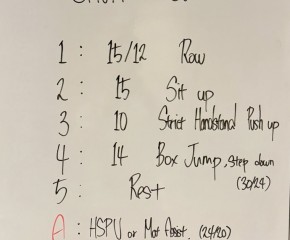 1 : 15/12 Row
2 : 15 Sit up
3 : 10 Strict Handstand Push up
4 : 14 Box Jump, Step down
(30/24)
5 : Rest
A : HSPU or Mat Assist. (24/20)